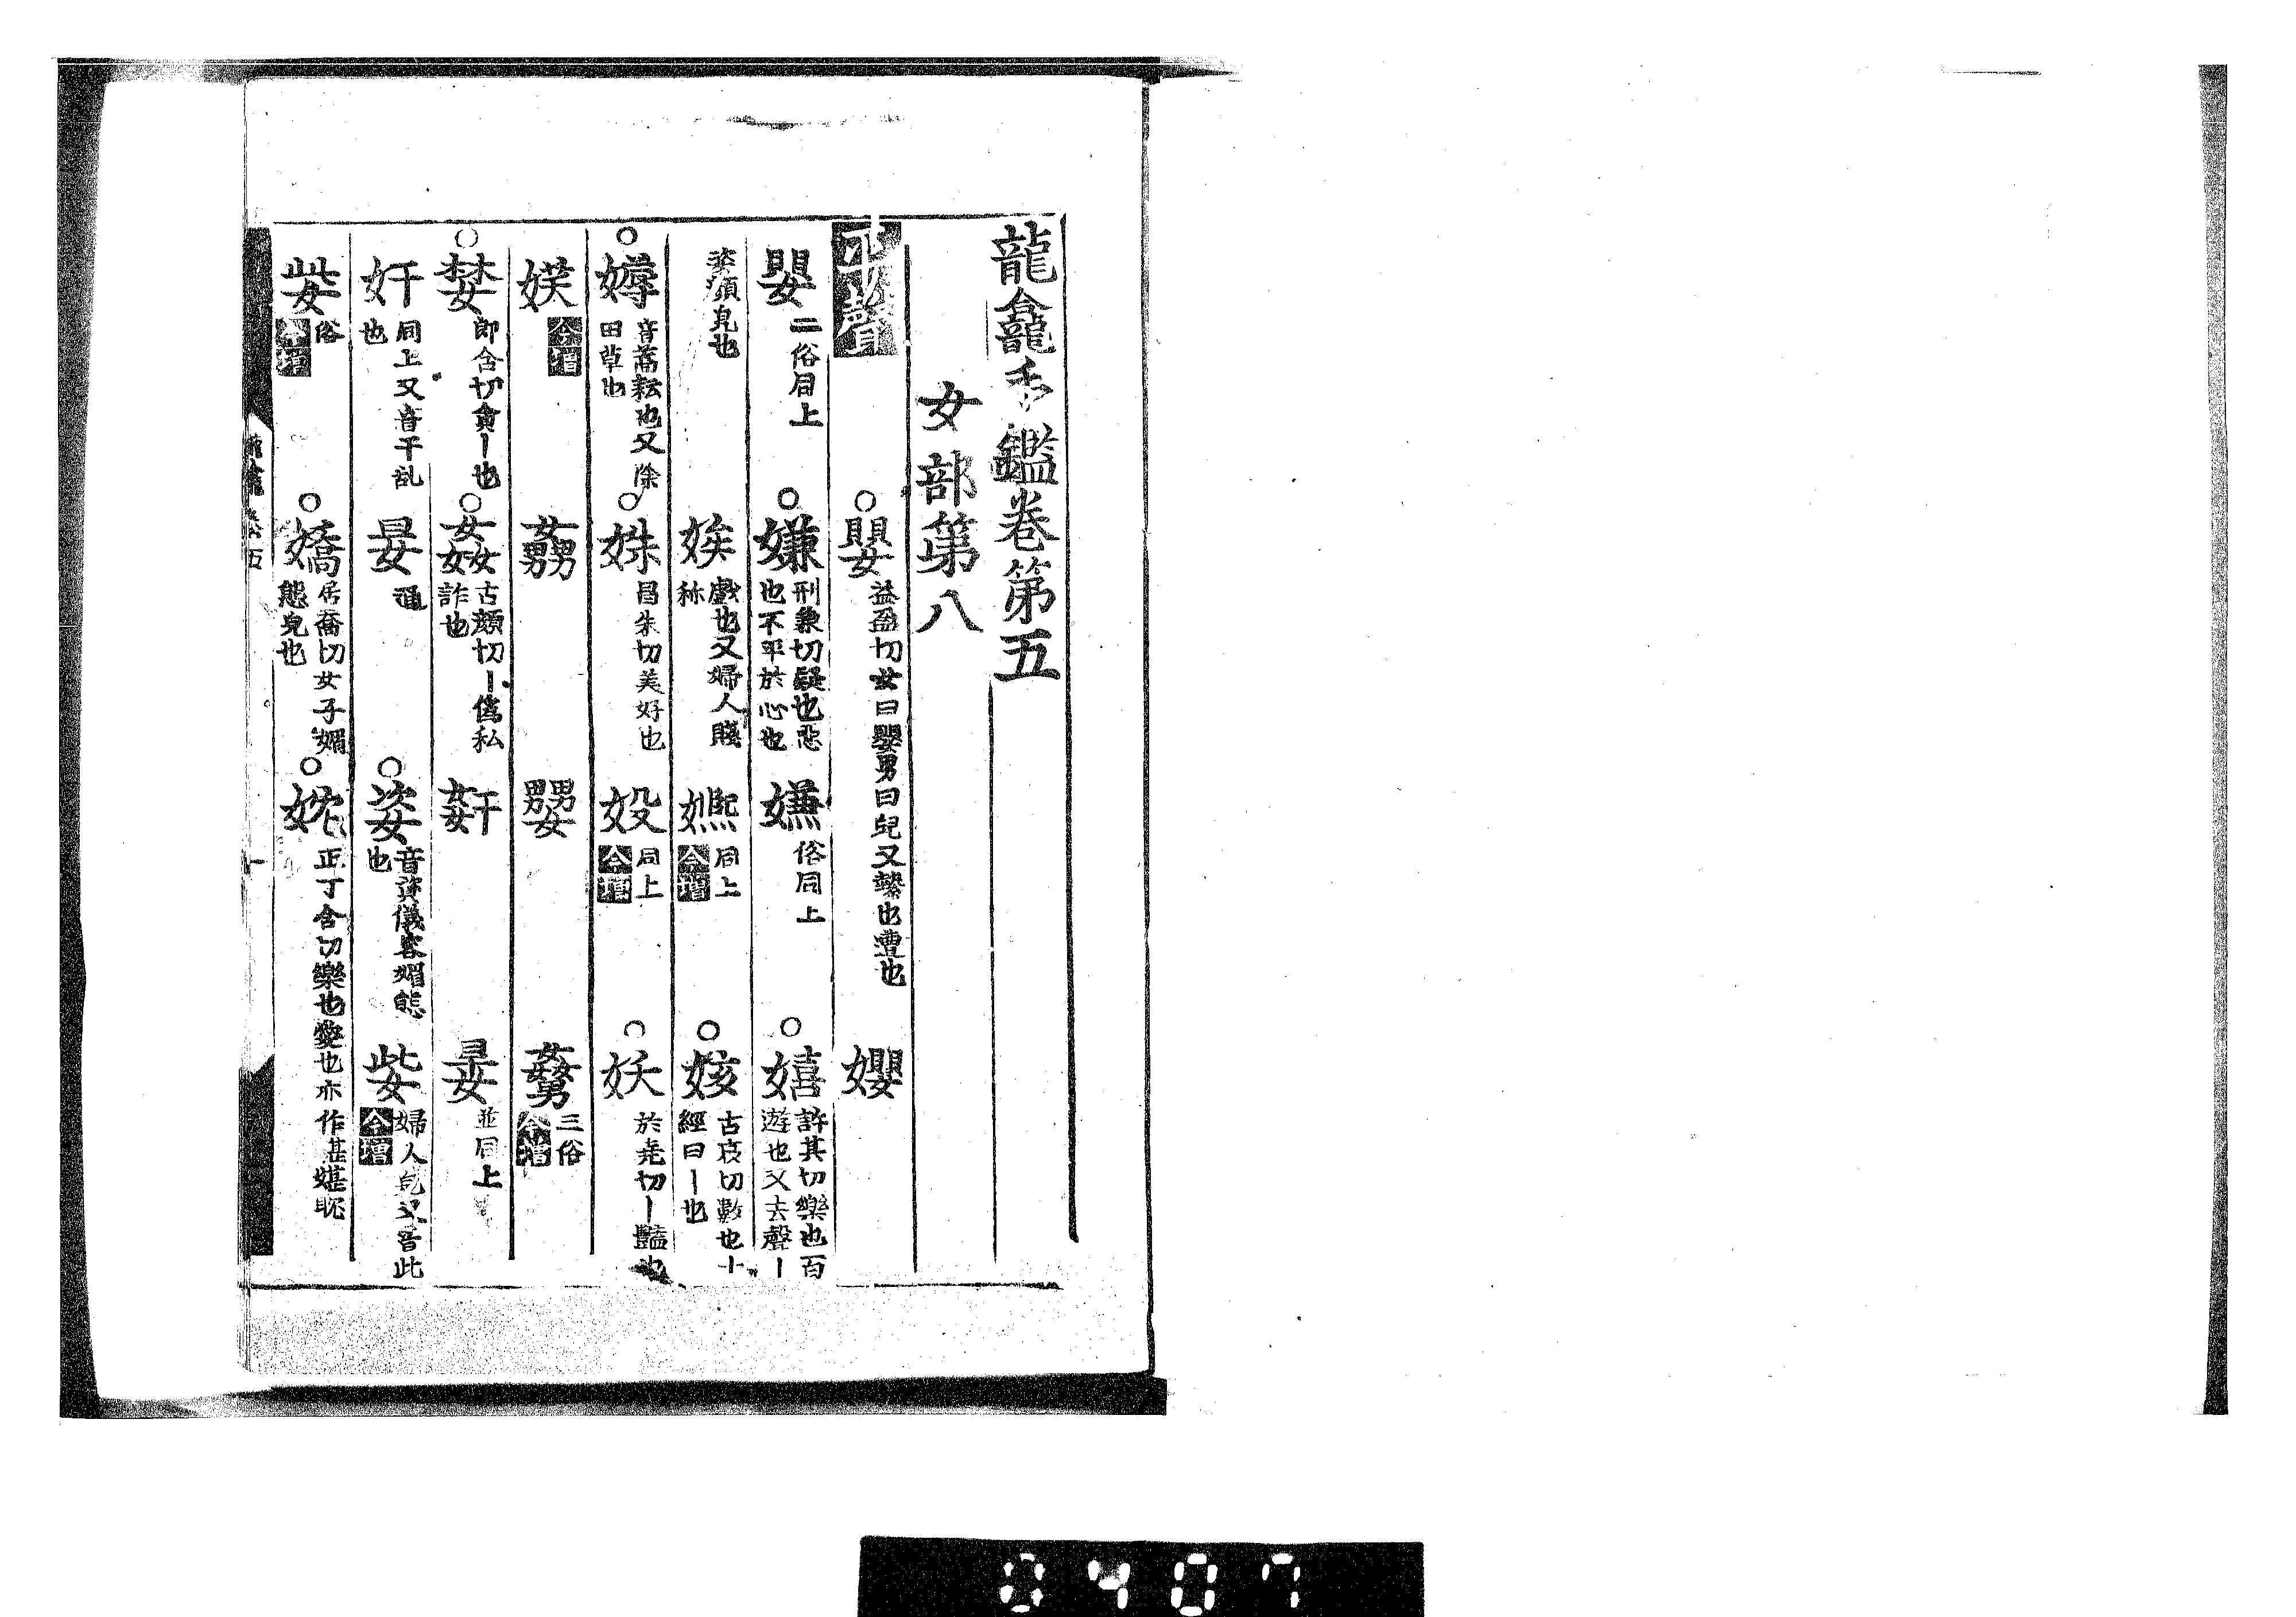 龍龕手鑑卷第五
女部第八
平聲 ○嬰益盈切女曰嬰男曰兒又縈也遭也 孆
㛤二俗同上 ○嫌刑兼切疑也惡也不平於心也 嬚俗同上 ○嬉許其切樂也百遊也又去聲丨
姿頭皃也 娭戲也又婦人賤称 㷩同上今增 ○姟古哀切數也十經曰丨也
○媷音蓐耘也又除田草也 ○姝昌朱切美好也 㚫同上今增 ○妖於尭切丨豔也
媄今增 嬲 嫐 三俗今增
○婪郎含切貪丨也 ○姦古顔切丨僞私詐也 並同上
奸同上又音干乱也 通 ○姿音資儀容媚態也 㛗婦人皃又音此今增
俗今增 ○嬌居喬切女子媚態皃也 ○妉正丁含切樂也愛也亦作媅
龍龕 卷五 一
0407